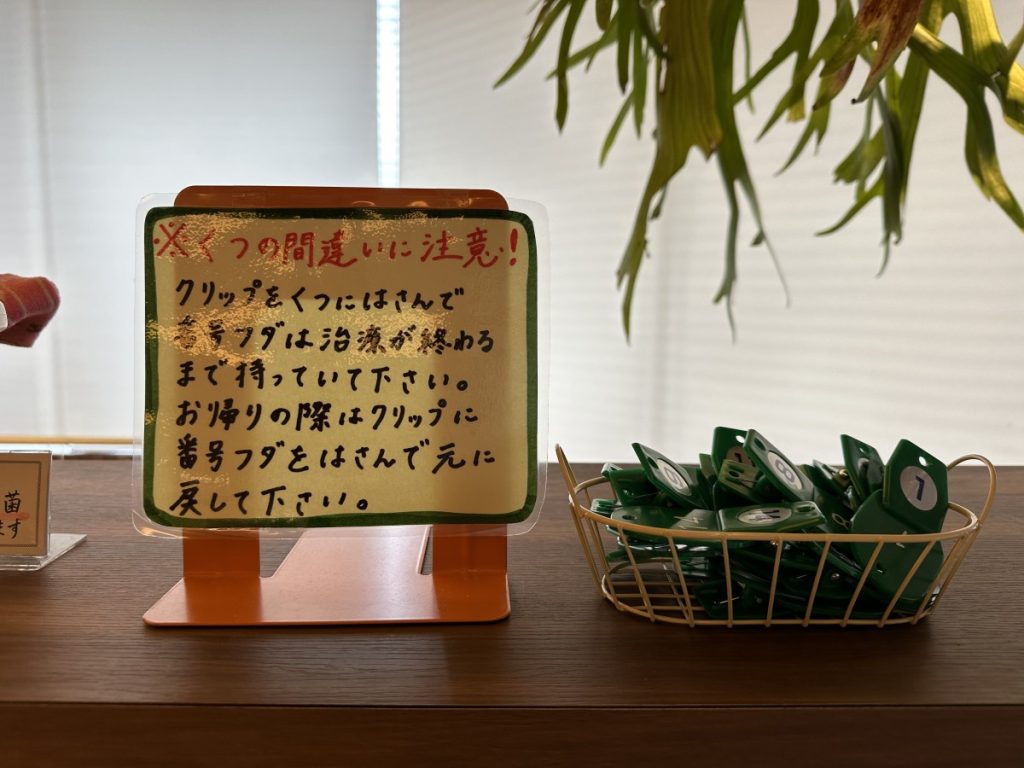 ※くつの間違いに注意!
クリップをくつにはさんで
番号フダは治療が終わる
まで持っていて下さい。
お帰りの際はクリップに
番号フダをはさんで元に
戻して下さい。
菌
ます
8
7